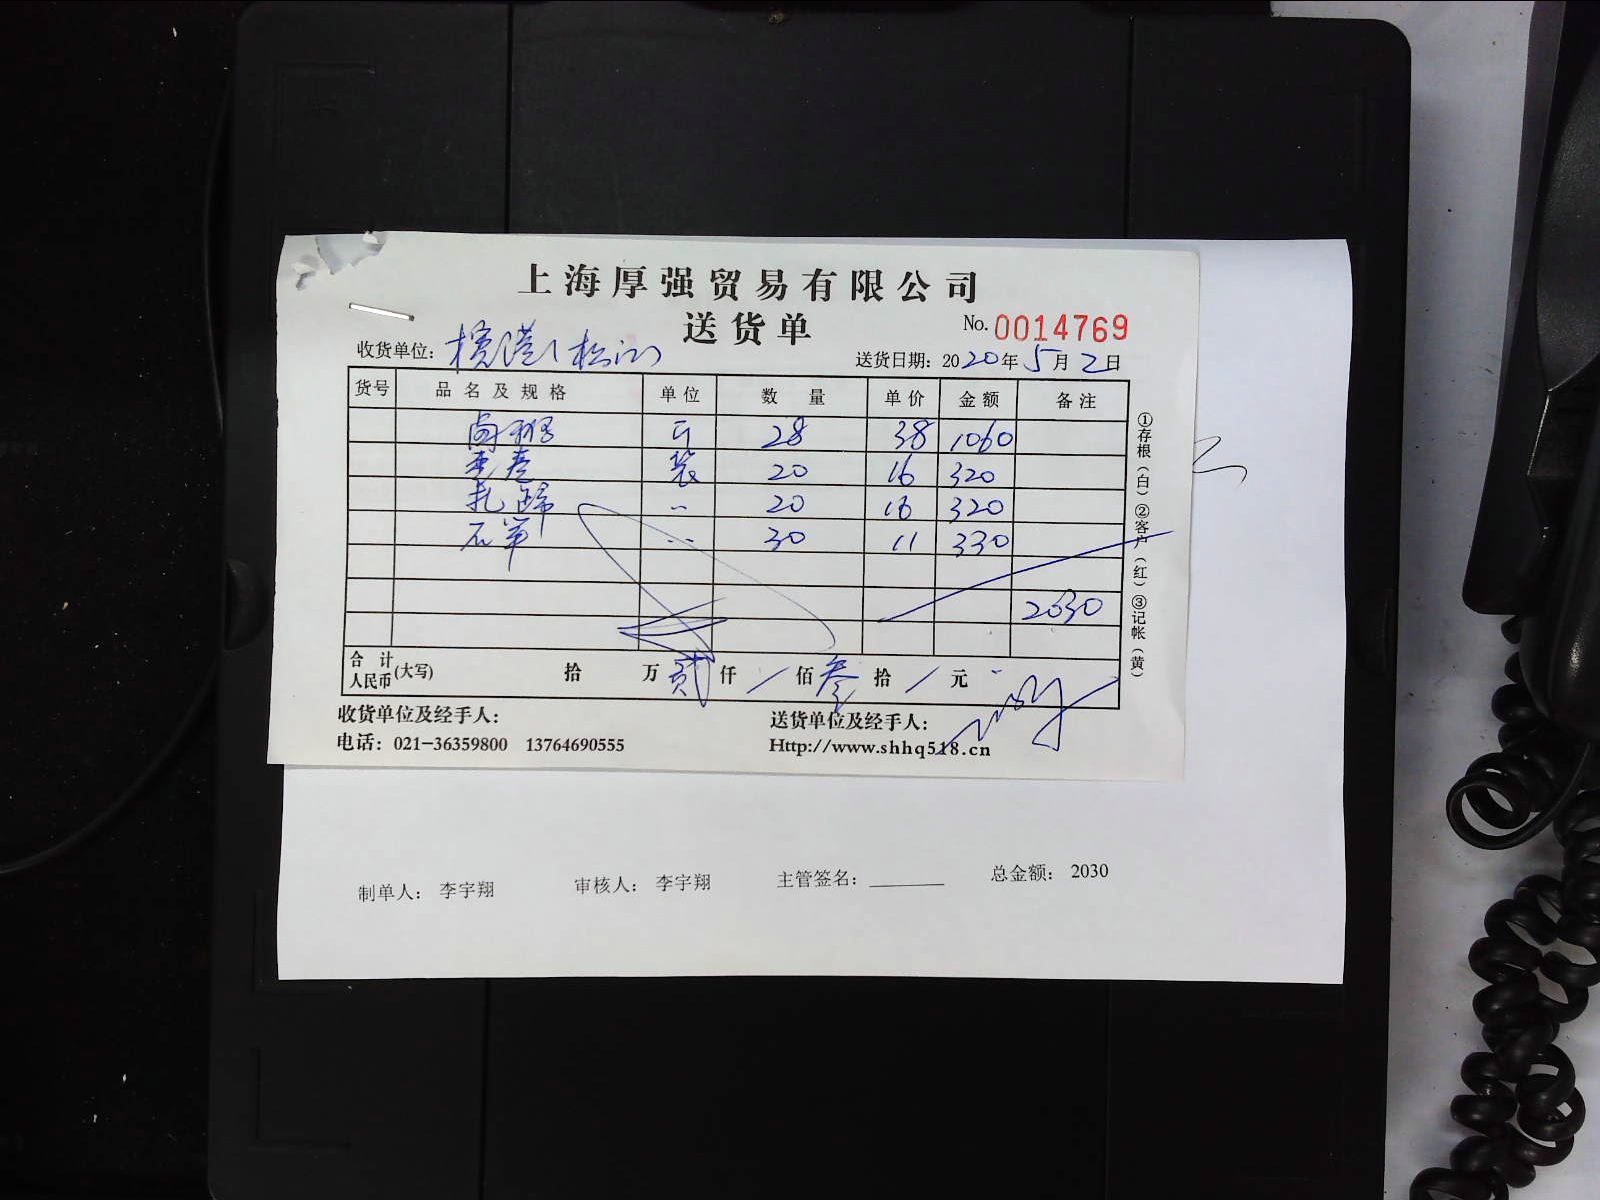 上海厚强贸易有限公司
送货单
No. 0014769
收货单位：
送货日期：2020年5月2日
货号 品名及规格 单位 数量 单价 金额 备注
28 38 1060
20 16 320
20 16 320
30 11 330
2030
合计人民币(大写) 拾 万 贰 仟 / 佰 叁 拾 / 元
收货单位及经手人：
送货单位及经手人：
电话：021-36359800 13764690555
Http://www.shhq518.cn
①存根（白）②客户（红）③记帐（黄）
制单人： 李宇翔 审核人： 李宇翔 主管签名：________ 总金额： 2030